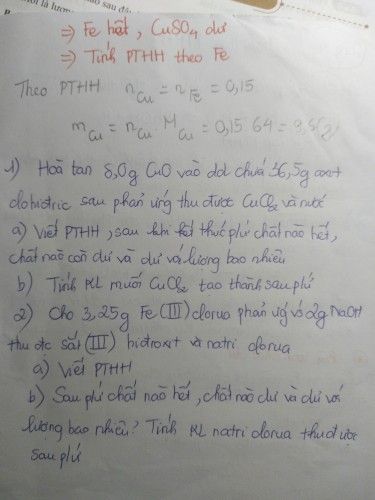 ⇒ Fe hết, CuSO4 dư
⇒ Tính PTHH theo Fe
Theo PTHH nCu = nFe = 0,15
mCu = nCu . MCu = 0,15.64 = 9,6(g)
1) Hoà tan 8,0g CuO vào dd chứa 36,5g axit
clohiđric sau phản ứng thu được CuCl2 và nước
a) Viết PTHH, sau khi kết thúc pứ chất nào hết,
chất nào còn dư và dư với lượng bao nhiêu
b) Tính KL muối CuCl2 tạo thành sau pứ
2) Cho 3,25g Fe (III) clorua phản ứng với 2g NaOH
thu đc sắt (III) hiđroxit và natri clorua
a) Viết PTHH
b) Sau pứ chất nào hết, chất nào dư và dư với
lượng bao nhiêu? Tính KL natri clorua thu được
sau pứ